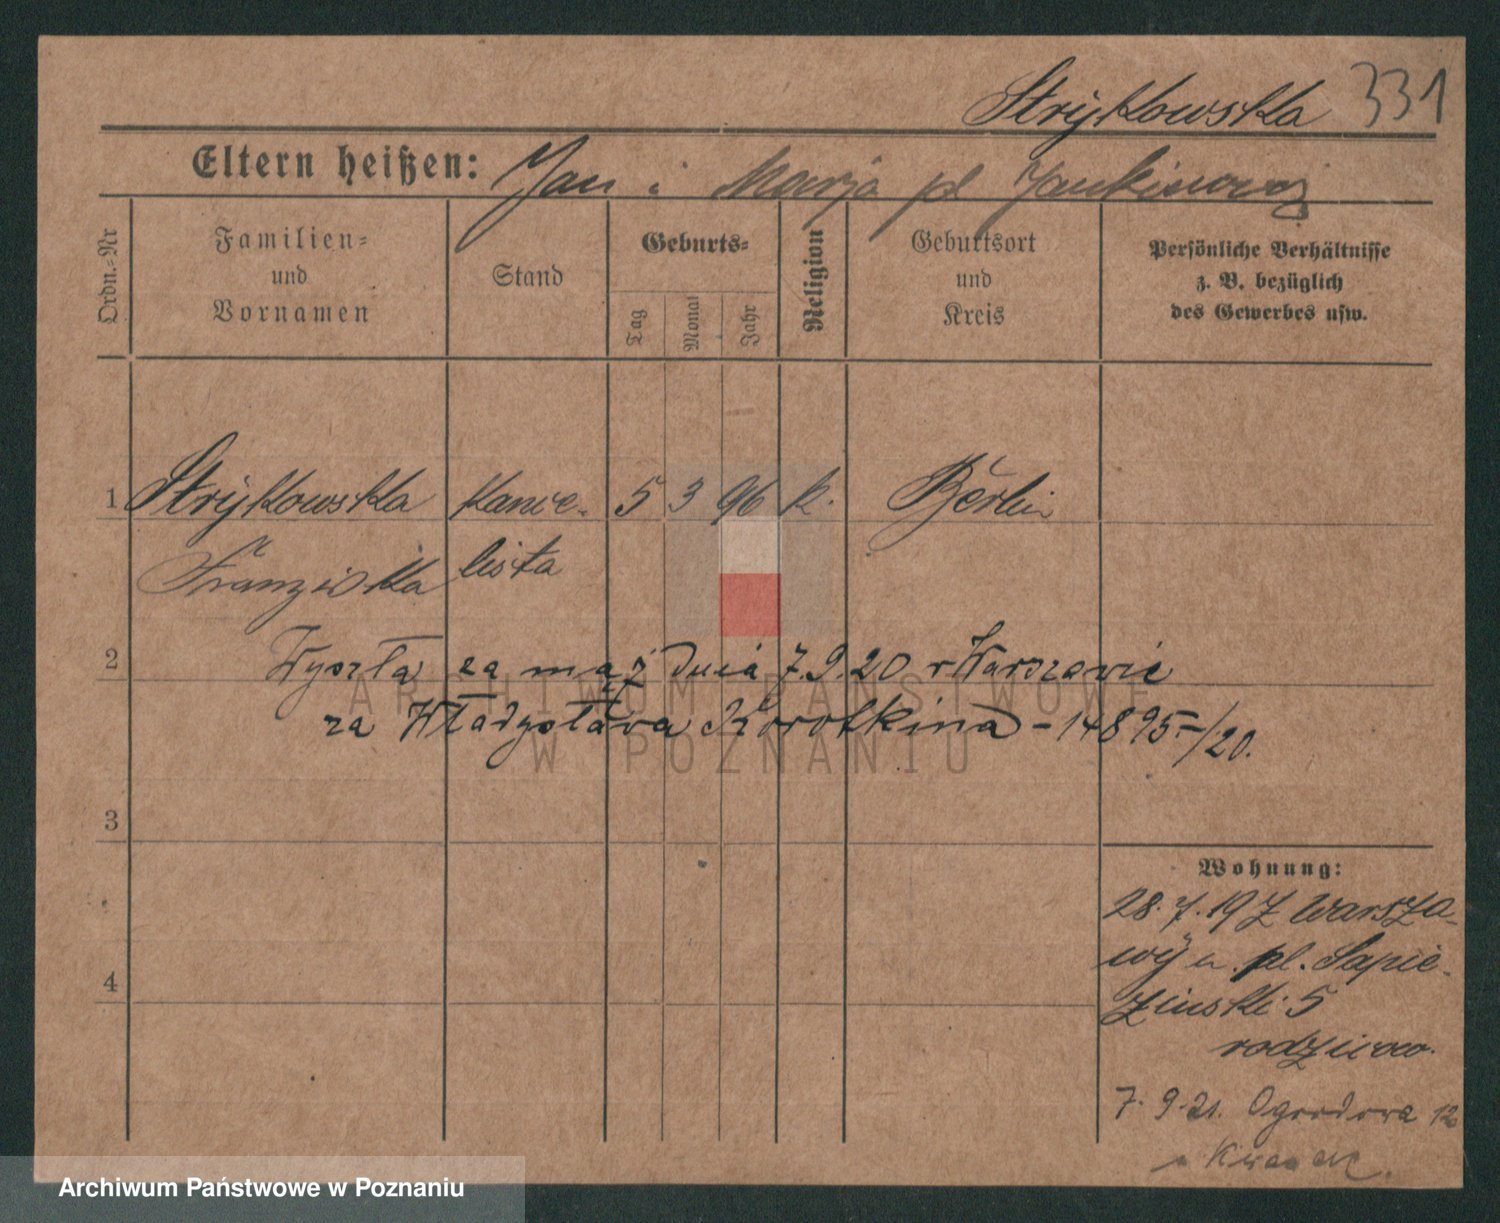 Strykowska 331
Eltern heißen: Jan i Marja
Ordn.-Nr
Familien- und Vornamen
Stand
Geburts-
Tag
Monat
Jahr
Religion
Geburtsort und Kreis
Persönliche Verhältnisse
z. B. bezüglich
des Gewerbes usw.
1 Strykowska kance- 5 3 96 k. Berlin
Franziska lista
2 Wyszła za mąż dnia 7.9.20 w Warszawie
za Władysława Korotkina - 14895/20.
3
Wohnung:
28.7.19 z Warsza-
wy pl. Sapie-
żinski 5
4
7.9.21. Ogrodowa 12
ARCHIWUM PAŃSTWOWE
W POZNANIU
Archiwum Państwowe w Poznaniu